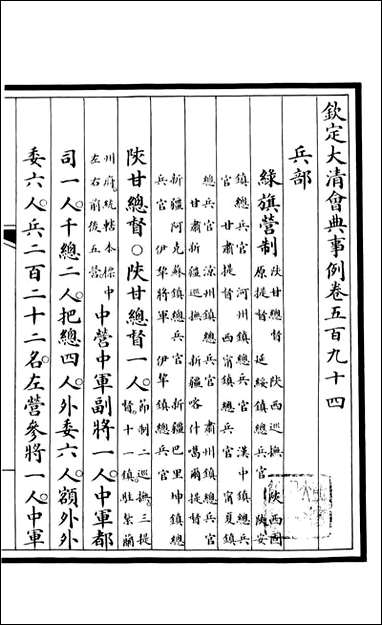 欽定大清會典事例卷五百九十四
兵部
綠旗營制 陝甘總督 陝西巡撫 陝西固
原提督 延綏鎮總兵官 陝安
鎮總兵官 河州鎮總兵官 漢中鎮總兵
官 甘肅提督 西甯鎮總兵官 甯夏鎮
總兵官 涼州鎮總兵官 肅州鎮總兵官
甘肅新疆巡撫 新疆喀什噶爾提督
新疆阿克蘇鎮總兵官 新疆巴里坤鎮總
兵官 伊犁將軍 伊犁鎮總兵官
陝甘總督○陝甘總督一人 節制二巡撫三提
督十一鎮駐紮蘭
州府統轄本標中
左右前後五營 中營中軍副將一人中軍都
司一人千總二人把總四人外委六人額外外
委六人兵二百二十二名左營參將一人中軍